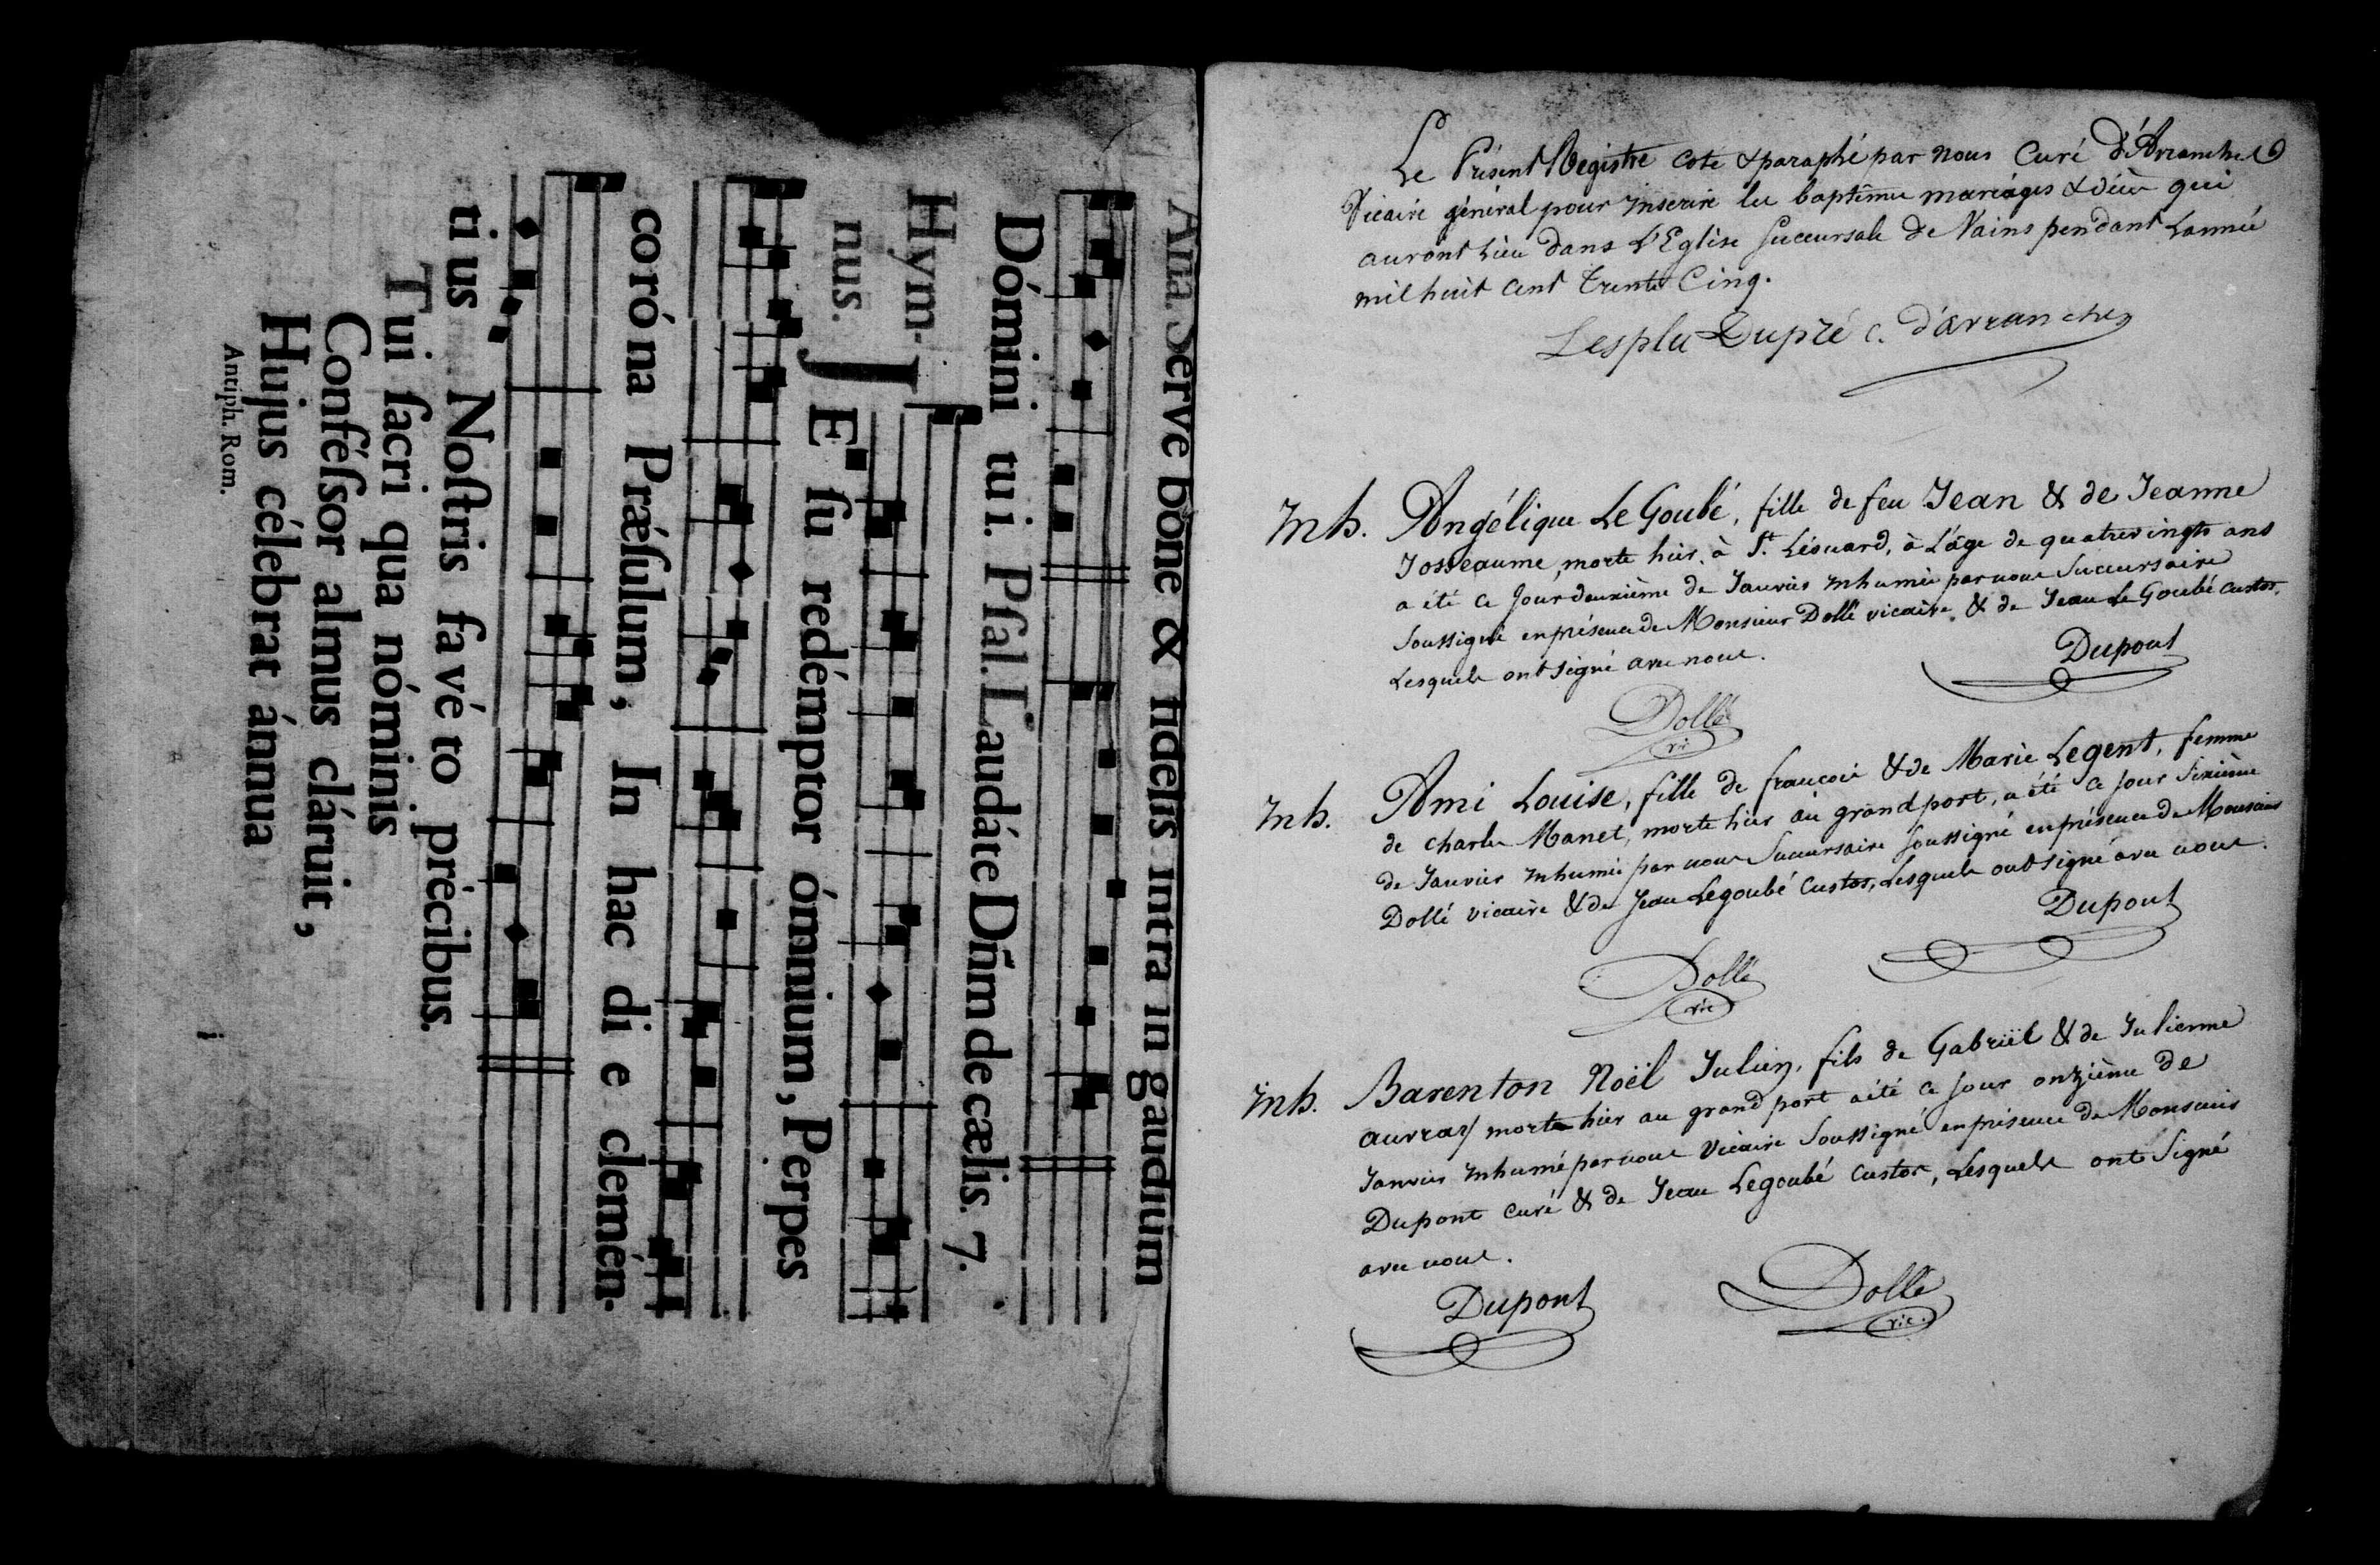 Ana. Serve bone & fidelis intra in gaudium
Dómini tu i. Psal. Laudáte Dñm de cælis. 7.
Hym-
nus.
JE ſu redémptor ómnium, Perpes
coró na Præſulum, In hac di e clemén-
ti us Noſtris fa vé to précibus.
Tui ſacri qua nóminis
Conféſsor almus cláruit,
Hujus célebrat ánnua
Antiph. Rom.
Le Présent Registre coté & paraphé par nous Curé d'Avranches
Vicaire général pour inscrire les baptêmes mariages & décès qui
auront Lieu dans L'Eglise Succursale de Vains pendant Lannée
mil huit cent trente Cinq.
Lesplu Dupré c. d'avranches
Inh. Angélique Le Goubé, fille de feu Jean & de Jeanne
Josseaume, morte hier, à St. Léonard, à L'âge de quatrevingts ans
a été ce Jour deuxième de Janvier Inhumée par nous Succursaire
Soussigné en présence de Monsieur Dollé vicaire, & de Jean Le Goubé custos,
Lesquels ont signé avec nous.
Dupont
Dollé
vic
Inh. Ami Louise, fille de françois & de Marie Legent, femme
de charles Manet, morte hier au grand port, a été ce Jour Sixième
de Janvier Inhumée par nous Succursaire Soussigné en présence de Monsieur
Dollé vicaire & de Jean Legoubé Custos, Lesquels ont signé avec nous.
Dupont
Dollé
vic
Inh. Barenton Noël Julien, fils de Gabriël & de Julienne
auvray morte hier au grand port a été ce Jour onzième de
Janvier Inhumé par nous Vicaire Soussigné en présence de Monsieur
Dupont curé & de Jean Legoubé Custos, Lesquels ont Signé
avec nous.
Dupont
Dollé
vic.